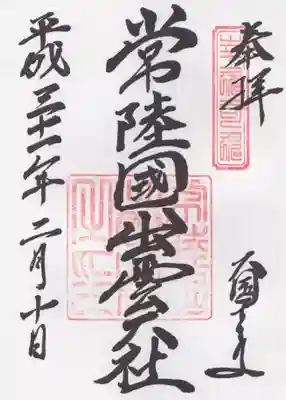 奉拝
常陸國出雲大社
平成三十一年二月十日